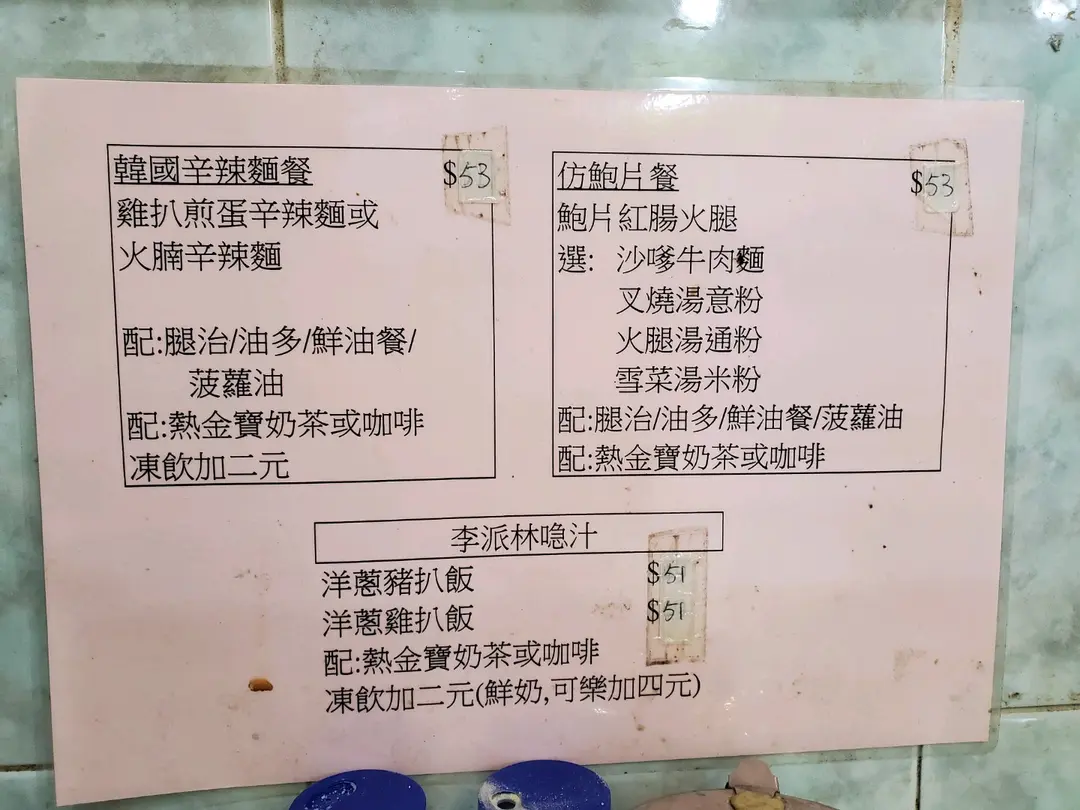 韓國辛辣麵餐 $53
雞扒煎蛋辛辣麵或
火腩辛辣麵
配:腿治/油多/鮮油餐/
菠蘿油
配:熱金寶奶茶或咖啡
凍飲加二元
仿鮑片餐 $53
鮑片紅腸火腿
選: 沙嗲牛肉麵
叉燒湯意粉
火腿湯通粉
雪菜湯米粉
配:腿治/油多/鮮油餐/菠蘿油
配:熱金寶奶茶或咖啡
李派林喼汁
洋蔥豬扒飯 $51
洋蔥雞扒飯 $51
配:熱金寶奶茶或咖啡
凍飲加二元(鮮奶,可樂加四元)